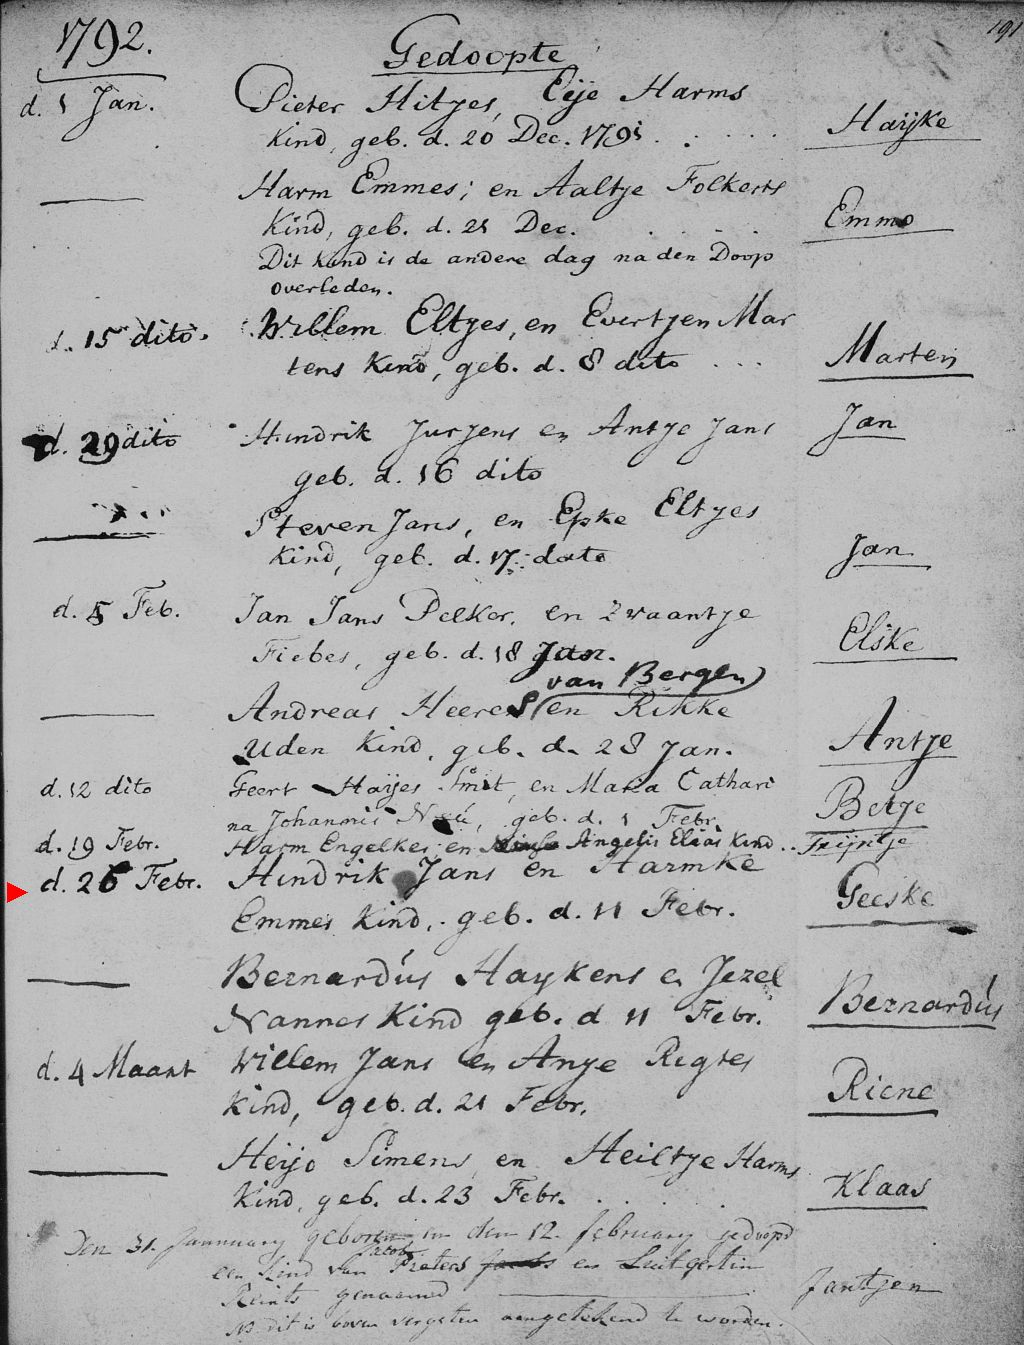 191
1792.
Gedoopte
d. 1 Jan. Pieter Hitjes, Eije Harms
Kind, geb. d. 20 Dec. 1791 . . . . . . Haijke
Harm Emmes; en Aaltje Folkerts
Kind, geb. d. 21 Dec. . . . . Emmo
Dit Kind is de andere dag na den Doop
overleden.
d. 15 dito. Willem Eltjes, en Evertjen Mar
tens Kind, geb. d. 8 dito . . . Marten
d. 29 dito Hindrik Jurjens en Antje Jans Jan
geb. d. 16 dito
Steven Jans, en Epke Eltjes
Kind, geb. d. 17 dato Jan
d. 5 Feb. Jan Jans Pelker, en Zwaantje
Fiebes, geb. d. 18 Jan. Elske
van Bergen
Andreas Heeres (en Rikke
Uden Kind, geb. d. 28 Jan. Antje
d. 12 dito Geert Haijes Smit, en Maria Cathari
na Johannis, geb. d. 1 Febr. Betje
d. 19 Febr. Harm Engelkes en Angelis Elaas Kind . . Trijntje
d. 26 Febr. Hindrik Jans en Harmke
Emmes Kind, geb. d. 11 Febr. Geeske
Bernardús Haykens en Jezel
Nannes Kind geb. d 11 Febr. Bernardús
d. 4 Maart Willem Jans en Antje Rigtes
Kind, geb. d. 21 Febr. Riene
Heijo Simens, en Heiltje Harms
Kind, geb. d. 23 Febr. . . . . Klaas
Den 31. Jannuary geboren en den 12. february gedoopd
Jacob
een Kind van Pieters en Luitgertin
Reints genaamd Jantjen
NB dit is boven vergeten aangetekend te worden.